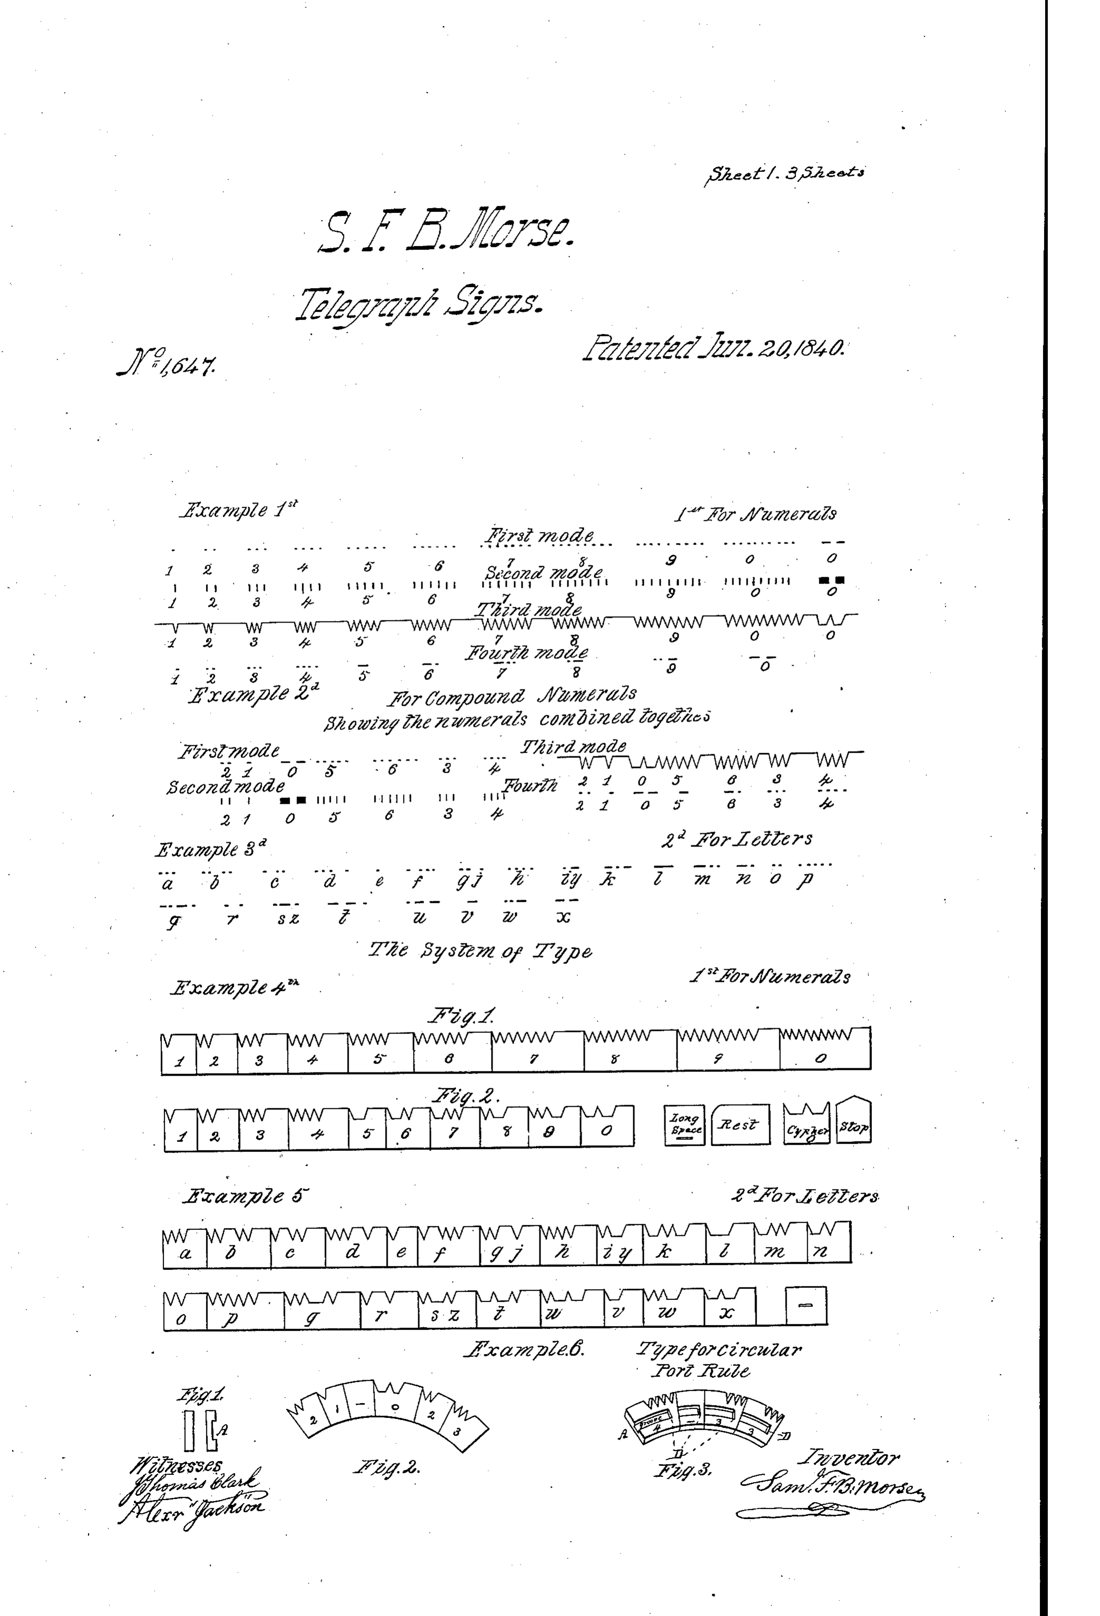 Sheet 1. 3 Sheets
S. F. B. Morse.
Telegraph Signs.
Nº 1,647.
Patented Jun. 20, 1840.
Example 1st
1st For Numerals
First mode
1 2 3 4 5 6 7 8 9 0 0
Second mode
1 2 3 4 5 6 7 8 9 0 0
Third mode
1 2 3 4 5 6 7 8 9 0 0
Fourth mode
1 2 3 4 5 6 7 8 9 0
Example 2d For Compound Numerals
Showing the numerals combined together
First mode
2 1 0 5 6 3 4
Third mode
2 1 0 5 6 3 4
Second mode
2 1 0 5 6 3 4
Fourth
2 1 0 5 6 3 4
Example 3d
2d For Letters
a b c d e f gj h iy k l m n o p
q r sz t u v w x
The System of Type
Example 4th
1st For Numerals
Fig. 1.
1 2 3 4 5 6 7 8 9 0
Fig. 2.
1 2 3 4 5 6 7 8 9 0 Long Space Rest Cypher Stop
Example 5
2d For Letters
a b c d e f g j h i y k l m n
o p q r s z t u v w x –
Example. 6.
Type for circular
Port Rule
Fig. 1.
A
2 1 – 0 2 3
Fig. 2.
A 4 – 3 3 D
D
Fig. 3.
Witnesses
J Thomas Clark
Alexr Jackson
Inventor
Saml. F. B. Morse